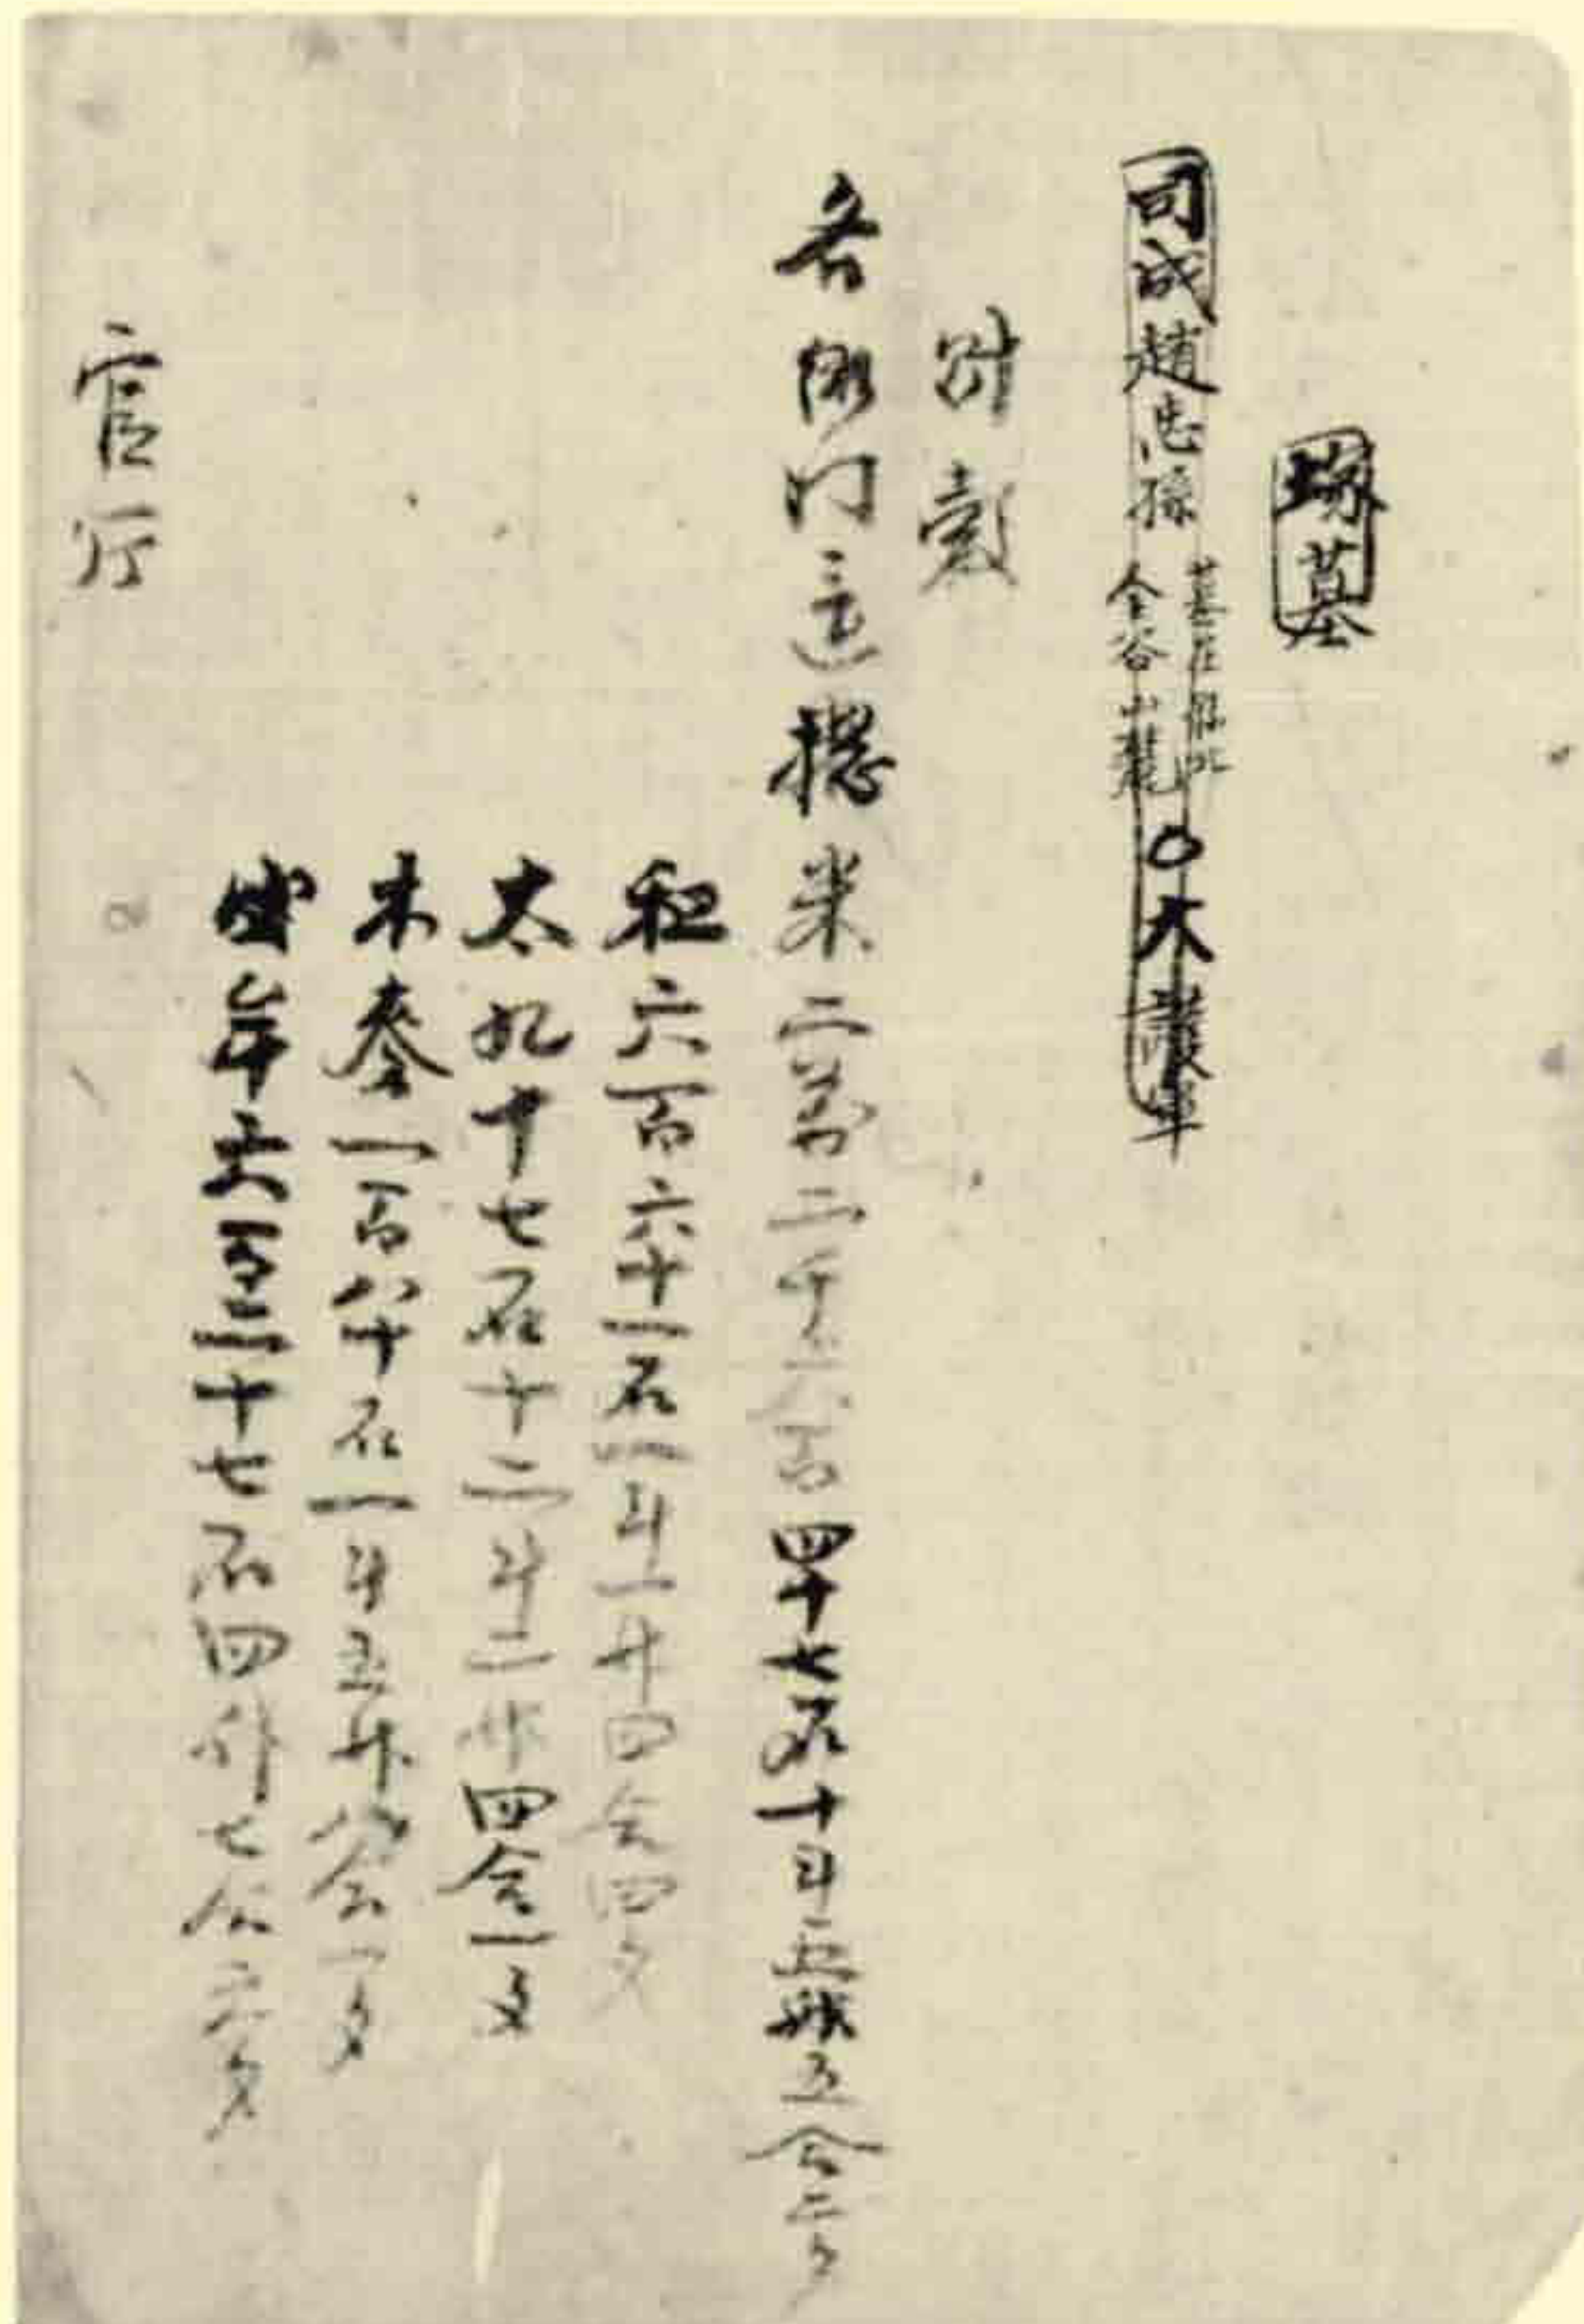 塚墓
司成趙忠孫 墓在府北金谷山麓 〇大護軍
財藪
各衙門這摠米二萬二千六百四十七石十斗五升五合二夕
租六百六十一石一斗一升四合四夕
太九十七石十二斗二升四合一夕
木麥一百八十石一斗五升八合一夕
年六百三十七石四升七合六夕
官厅